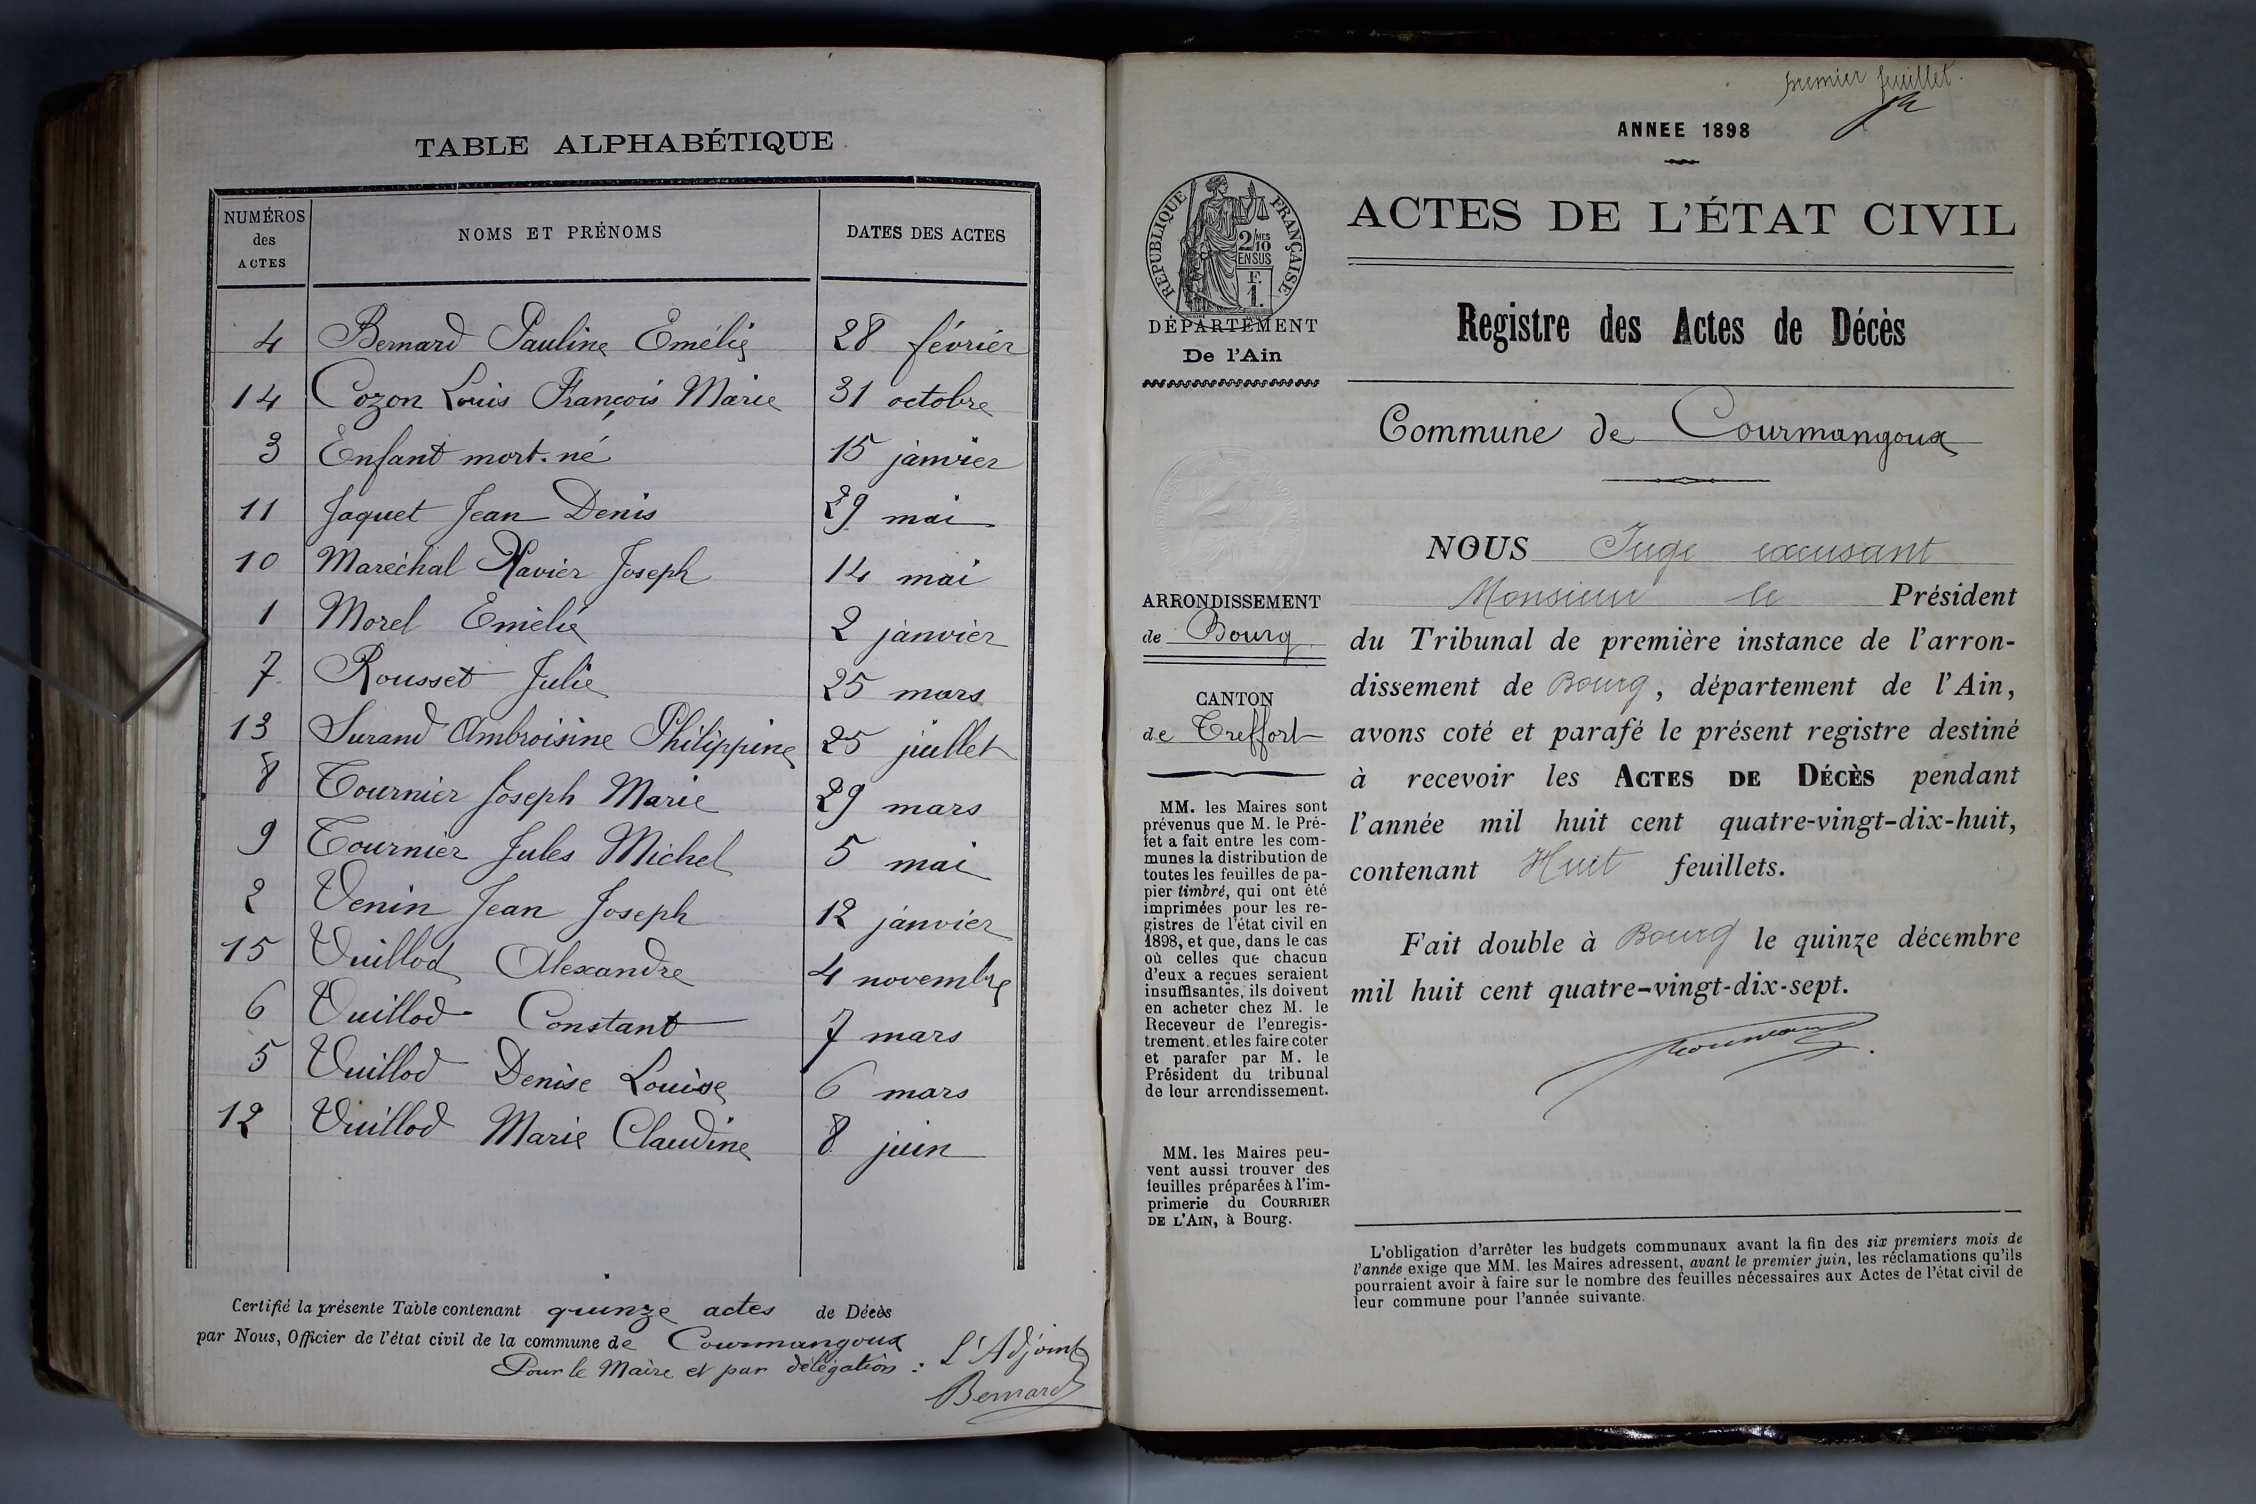 TABLE ALPHABÉTIQUE
NUMÉROS
des
ACTES
NOMS ET PRÉNOMS
DATES DES ACTES
4 Bernard Pauline Emélie 28 février
14 Cozon Louis François Marie 31 octobre
3 Enfant mort-né 15 janvier
11 Jaquet Jean Denis 29 mai
10 Maréchal Xavier Joseph 14 mai
1 Morel Emélie 2 janvier
7 Rousset Julie 25 mars
13 Surand Ambroisine Philippine 25 juillet
8 Tournier Joseph Marie 29 mars
9 Tournier Jules Michel 5 mai
2 Venin Jean Joseph 12 janvier
15 Vuillod Alexandre 4 novembre
6 Vuillod Constant 7 mars
5 Vuillod Denise Louise 6 mars
12 Vuillod Marie Claudine 8 juin
Certifié la présente Table contenant quinze actes de Décès
par Nous, Officier de l'état civil de la commune de Courmangoux
Pour le Maire et par délégation : L'Adjoint
Bernard
premier feuillet.
ANNEE 1898
RÉPUBLIQUE FRANÇAISE
2/10 MES
EN SUS
F.
1.
DÉPARTEMENT
De l'Ain
ARRONDISSEMENT
de Bourg
CANTON
de Treffort
MM. les Maires sont
prévenus que M. le Pré-
fet a fait entre les com-
munes la distribution de
toutes les feuilles de pa-
pier timbré, qui ont été
imprimées pour les re-
gistres de l'état civil en
1898, et que, dans le cas
où celles que chacun
d'eux a reçues seraient
insuffisantes, ils doivent
en acheter chez M. le
Receveur de l'enregis-
trement, et les faire coter
et parafer par M. le
Président du tribunal
de leur arrondissement.
MM. les Maires peu-
vent aussi trouver des
feuilles préparées à l'im-
primerie du COURRIER
DE L'AIN, à Bourg.
ACTES DE L'ÉTAT CIVIL
Registre des Actes de Décès
Commune de Courmangoux
NOUS Juge excusant
Monsieur le Président
du Tribunal de première instance de l'arron-
dissement de Bourg, département de l'Ain,
avons coté et parafé le présent registre destiné
à recevoir les ACTES DE DÉCÈS pendant
l'année mil huit cent quatre-vingt-dix-huit,
contenant Huit feuillets.
Fait double à Bourg le quinze décembre
mil huit cent quatre-vingt-dix-sept.
L'obligation d'arrêter les budgets communaux avant la fin des six premiers mois de
l'année exige que MM. les Maires adressent, avant le premier juin, les réclamations qu'ils
pourraient avoir à faire sur le nombre des feuilles nécessaires aux Actes de l'état civil de
leur commune pour l'année suivante.